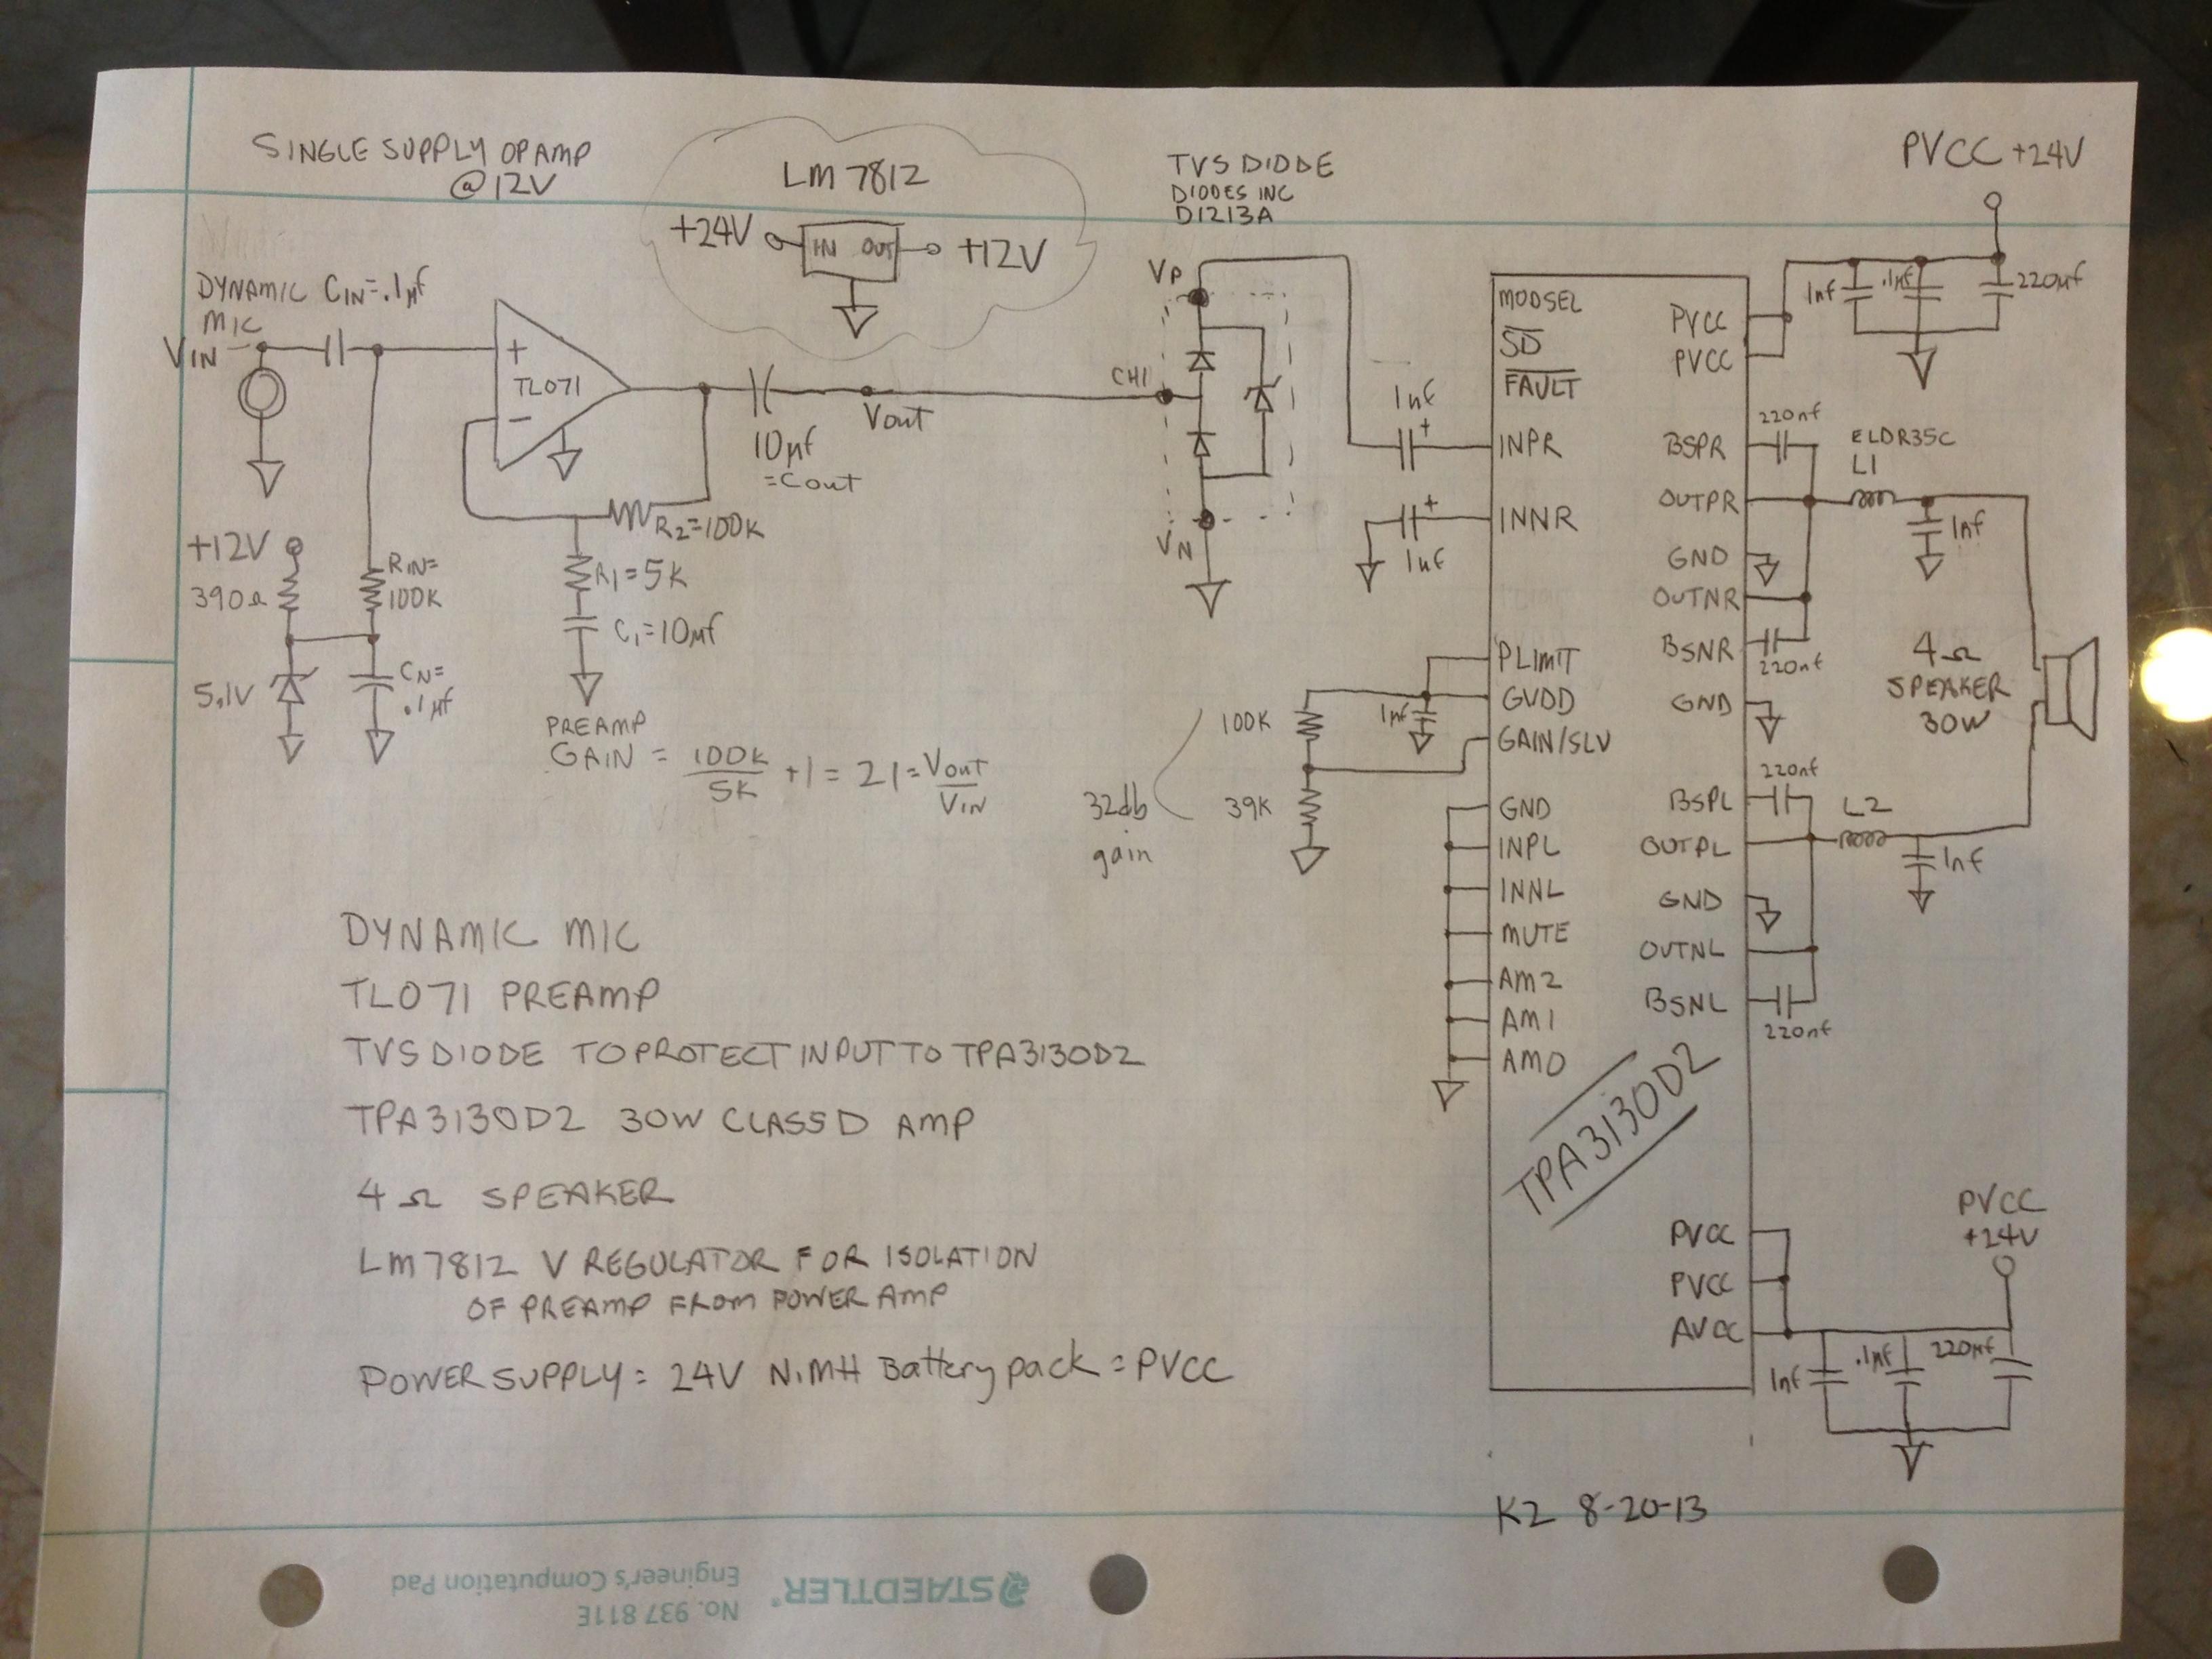 SINGLE SUPPLY OP AMP
@ 12V
LM 7812
+24V IN OUT +12V
TVS DIODE
DIODES INC
D1213A
PVCC +24V
DYNAMIC CIN=.1µf
MIC
VIN
+
TL071
-
10µf
=Cout
Vout
R2=100K
R1=5K
C1=10µf
+12V
390Ω
5.1V
RIN=
100K
CN=
.1µf
PREAMP
GAIN = 100K/5K +1 = 21 = Vout/VIN
VP
CH1
VN
1nf
+
+
1nf
100K
39K
1nf
32db
gain
MODSEL
SD
FAULT
INPR
INNR
PLIMIT
GVDD
GAIN/SLV
GND
INPL
INNL
MUTE
AM2
AM1
AM0
TPA3130D2
PVCC
PVCC
BSPR
OUTPR
GND
OUTNR
BSNR
GND
BSPL
OUTPL
GND
OUTNL
BSNL
PVCC
PVCC
AVCC
1nf .1µf 220µf
220nf
ELDR35C
L1
1nf
220nf
4Ω
SPEAKER
30W
220nf
L2
1nf
220nf
PVCC
+24V
1nf .1µf 220µf
DYNAMIC MIC
TL071 PREAMP
TVS DIODE TO PROTECT INPUT TO TPA3130D2
TPA3130D2 30W CLASS D AMP
4Ω SPEAKER
LM7812 V REGULATOR FOR ISOLATION
OF PREAMP FROM POWER AMP
POWER SUPPLY = 24V NiMH Battery pack = PVCC
K2 8-20-13
STAEDTLER®
No. 937 811E
Engineer's Computation Pad